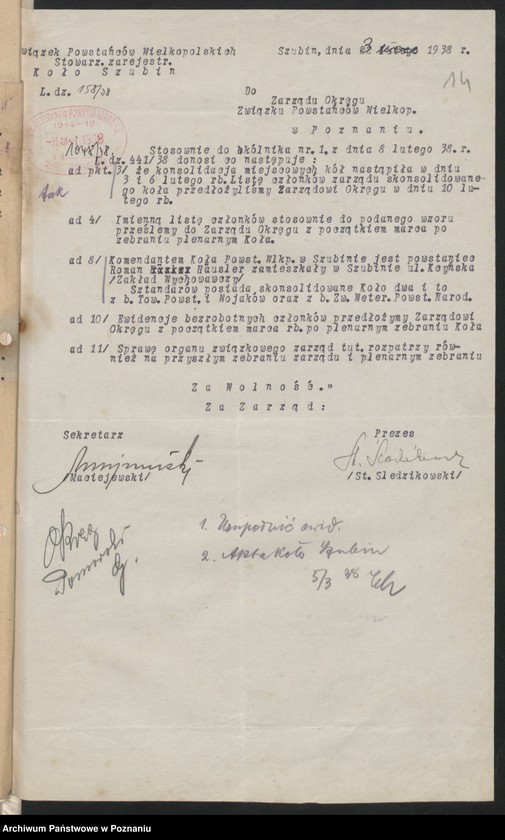 wiązek Powstańców Wielkopolskich
Stowarz. zarejestr.
Koło Szubin
Szubin, dnia 3 1938 r.
14
L. dz. 158/38
Do
Zarządu Okręgu
Związku Powstańców Wielkop.
w Poznaniu.
1048/38.
Stosownie do okólnika nr. 1. z dnia 8 lutego 38. r.
L. dz. 441/38 donosi co następuje :
ad pkt. 3/ że konsolidacja miejscowych kół nastąpiła w dniu
3 i 6 lutego rb. Listę członków zarządu skonsolidowane-
go koła przedłożyliśmy Zarządowi Okręgu w dniu 10 lu-
tego rb.
tak
ad 4/ Imienną listę członków stosownie do podanego wzoru
prześlemy do Zarządu Okręgu z początkiem marca po
zebraniu plenarnym Koła.
ad 8/ Komendantem Koła Powst. Wlkp. w Szubinie jest powstaniec
Roman Häusler zamieszkały w Szubinie ul. Kcyńska
/Zakład Wychowawczy/
Sztandarów posiada skonsolidowane Koło dwa i to
z b. Tow. Powst. i Wojaków oraz z b. Zw. Weter. Powst. Narod.
ad 10/ Ewidencje bezrobotnych członków przedłożymy Zarządowi
Okręgu z początkiem marca rb. po plenarnym zebraniu Koła
ad 11/ Sprawę organu związkowego zarząd tut. rozpatrzy rów-
nież na przyszłym zebraniu zarządu i plenarnym zebraniu
Za Wolność."
Za Zarząd:
Sekretarz
Prezes
/Maciejewski/
/St. Sledzikowski/
Okręg
Pomorski
1. Uzupełnić ewid.
2. Akta Koło Szubin
5/3 38
Archiwum Państwowe w Poznaniu